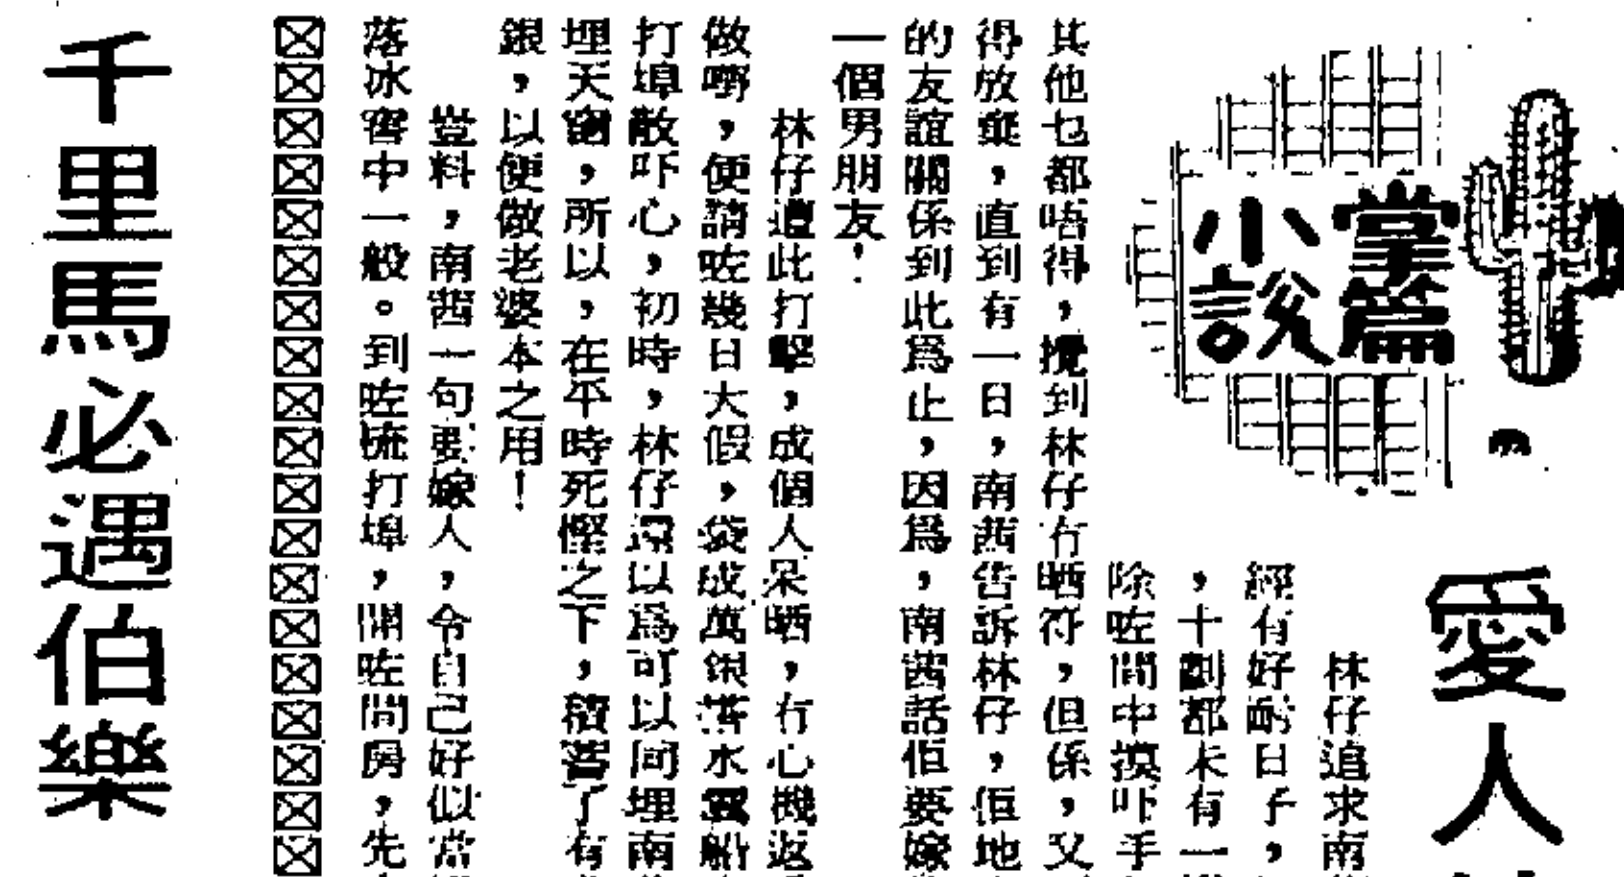 掌篇
小說
愛人
林仔追求南
經有好耐日子，
，十劃都未有一
除咗間中摸吓手
其他乜都唔得，攪到林仔冇晒符，但係，又
得放棄，直到有一日，南茜告訴林仔，佢地
的友誼關係到此爲止，因爲，南茜話佢要嫁
一個男朋友！
林仔遭此打擊，成個人呆晒，冇心機返
做嘢，便請咗幾日大假，袋成萬銀落水翼船
打埠散吓心，初時，林仔還以爲可以同埋南
埋天窗，所以，在平時死慳之下，積蓄了有
銀，以便做老婆本之用！
豈料，南茜一句要嫁人，令自己好似當
落冰窖中一般。到咗埗打埠，開咗間房，先
千里馬必遇伯樂